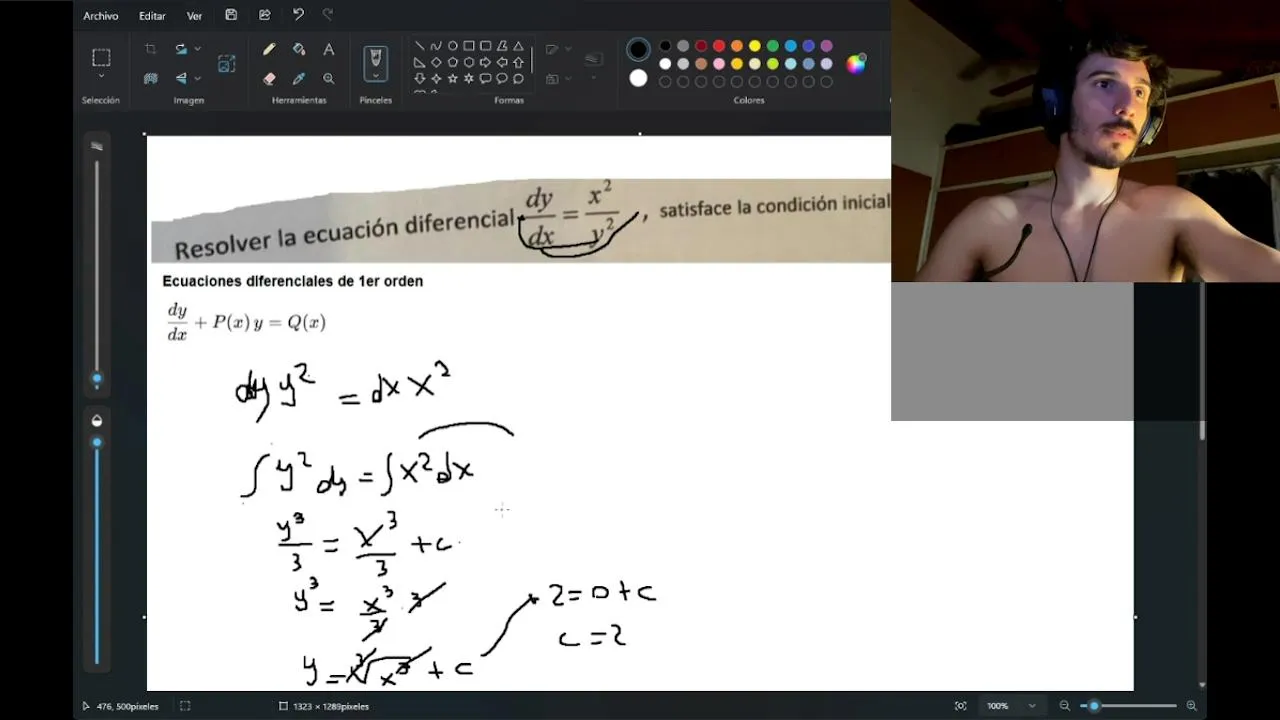 Archivo Editar Ver
Selección Imagen Herramientas Pinceles Formas Colores
Resolver la ecuación diferencial dy/dx = x²/y² , satisface la condición inicial
Ecuaciones diferenciales de 1er orden
dy/dx + P(x) y = Q(x)
dy y² = dx x²
∫ y² dy = ∫ x² dx
y³/3 = x³/3 + c
y³ = x³/3 · 3
2 = 0 + c
c = 2
y = ∛x³ + c
476, 500píxeles 1323 × 1289píxeles 100%